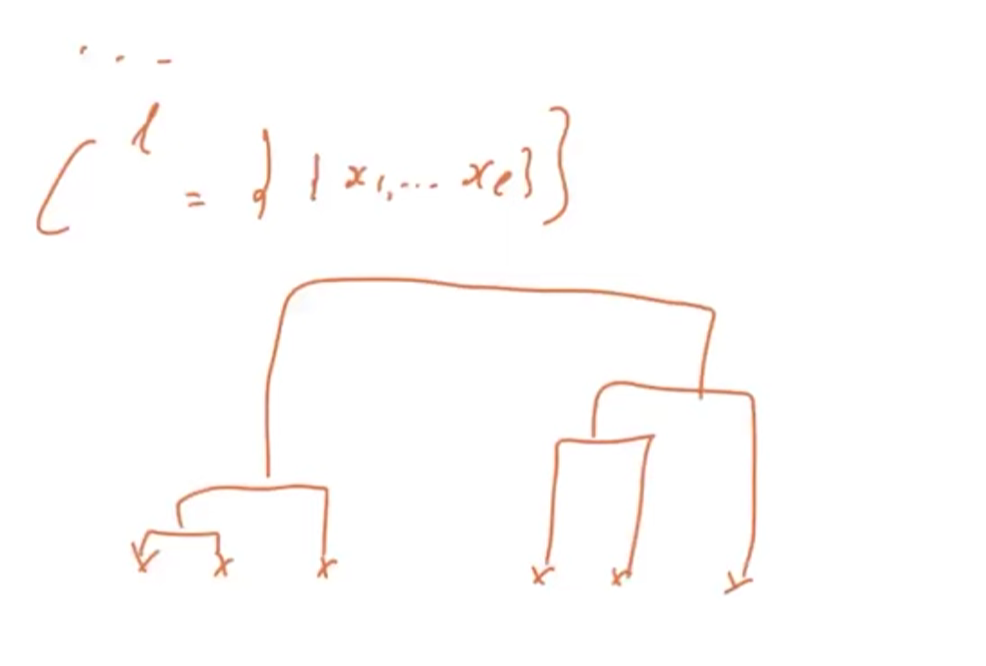 ...
C^l = { {x₁,... xₑ} }
x x x x x x